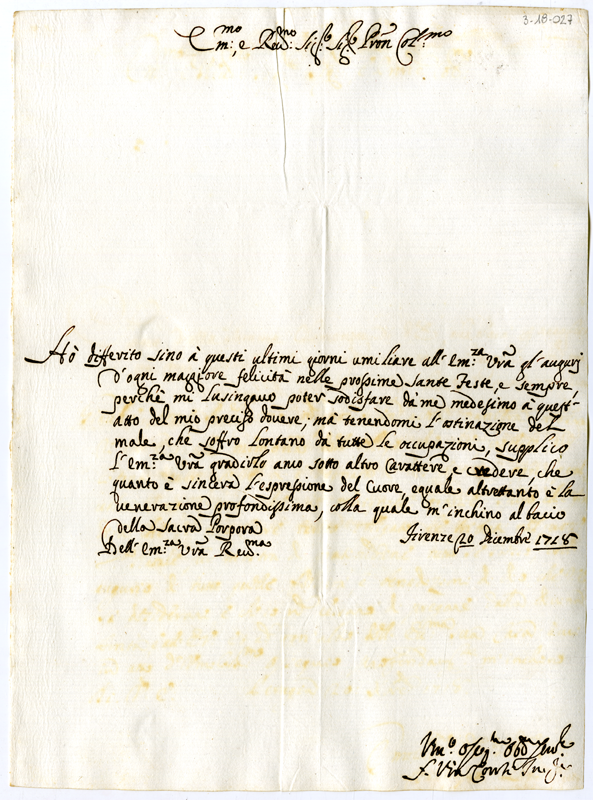 3-18-027
Em:mo, e Reu:mo Sig:re Sig:re Pron Col:mo
Hò differito sino à questi ultimi giorni umiliare all'Em:za Vra gl'augurj
d'ogni maggiore felicità nelle prossime Sante Feste, e sempre,
perchè mi lusingavo poter sodisfare da me medesimo à quest'
atto del mio preciso dovere; mà tenendomi l'ostinazione del
male, che soffro lontano dà tutte le occupazioni, supplico
l'Em:za Vra gradirlo anco sotto altro Carattere e credere, che
quanto è sincera l'espressione del Cuore, equale altrettanto è la
venerazione profondissima, colla quale m'inchino al bacio
della Sacra Porpora
Dell'Em:za Vra Reu:ma
Firenze 20 Decembre 1718
Um:o